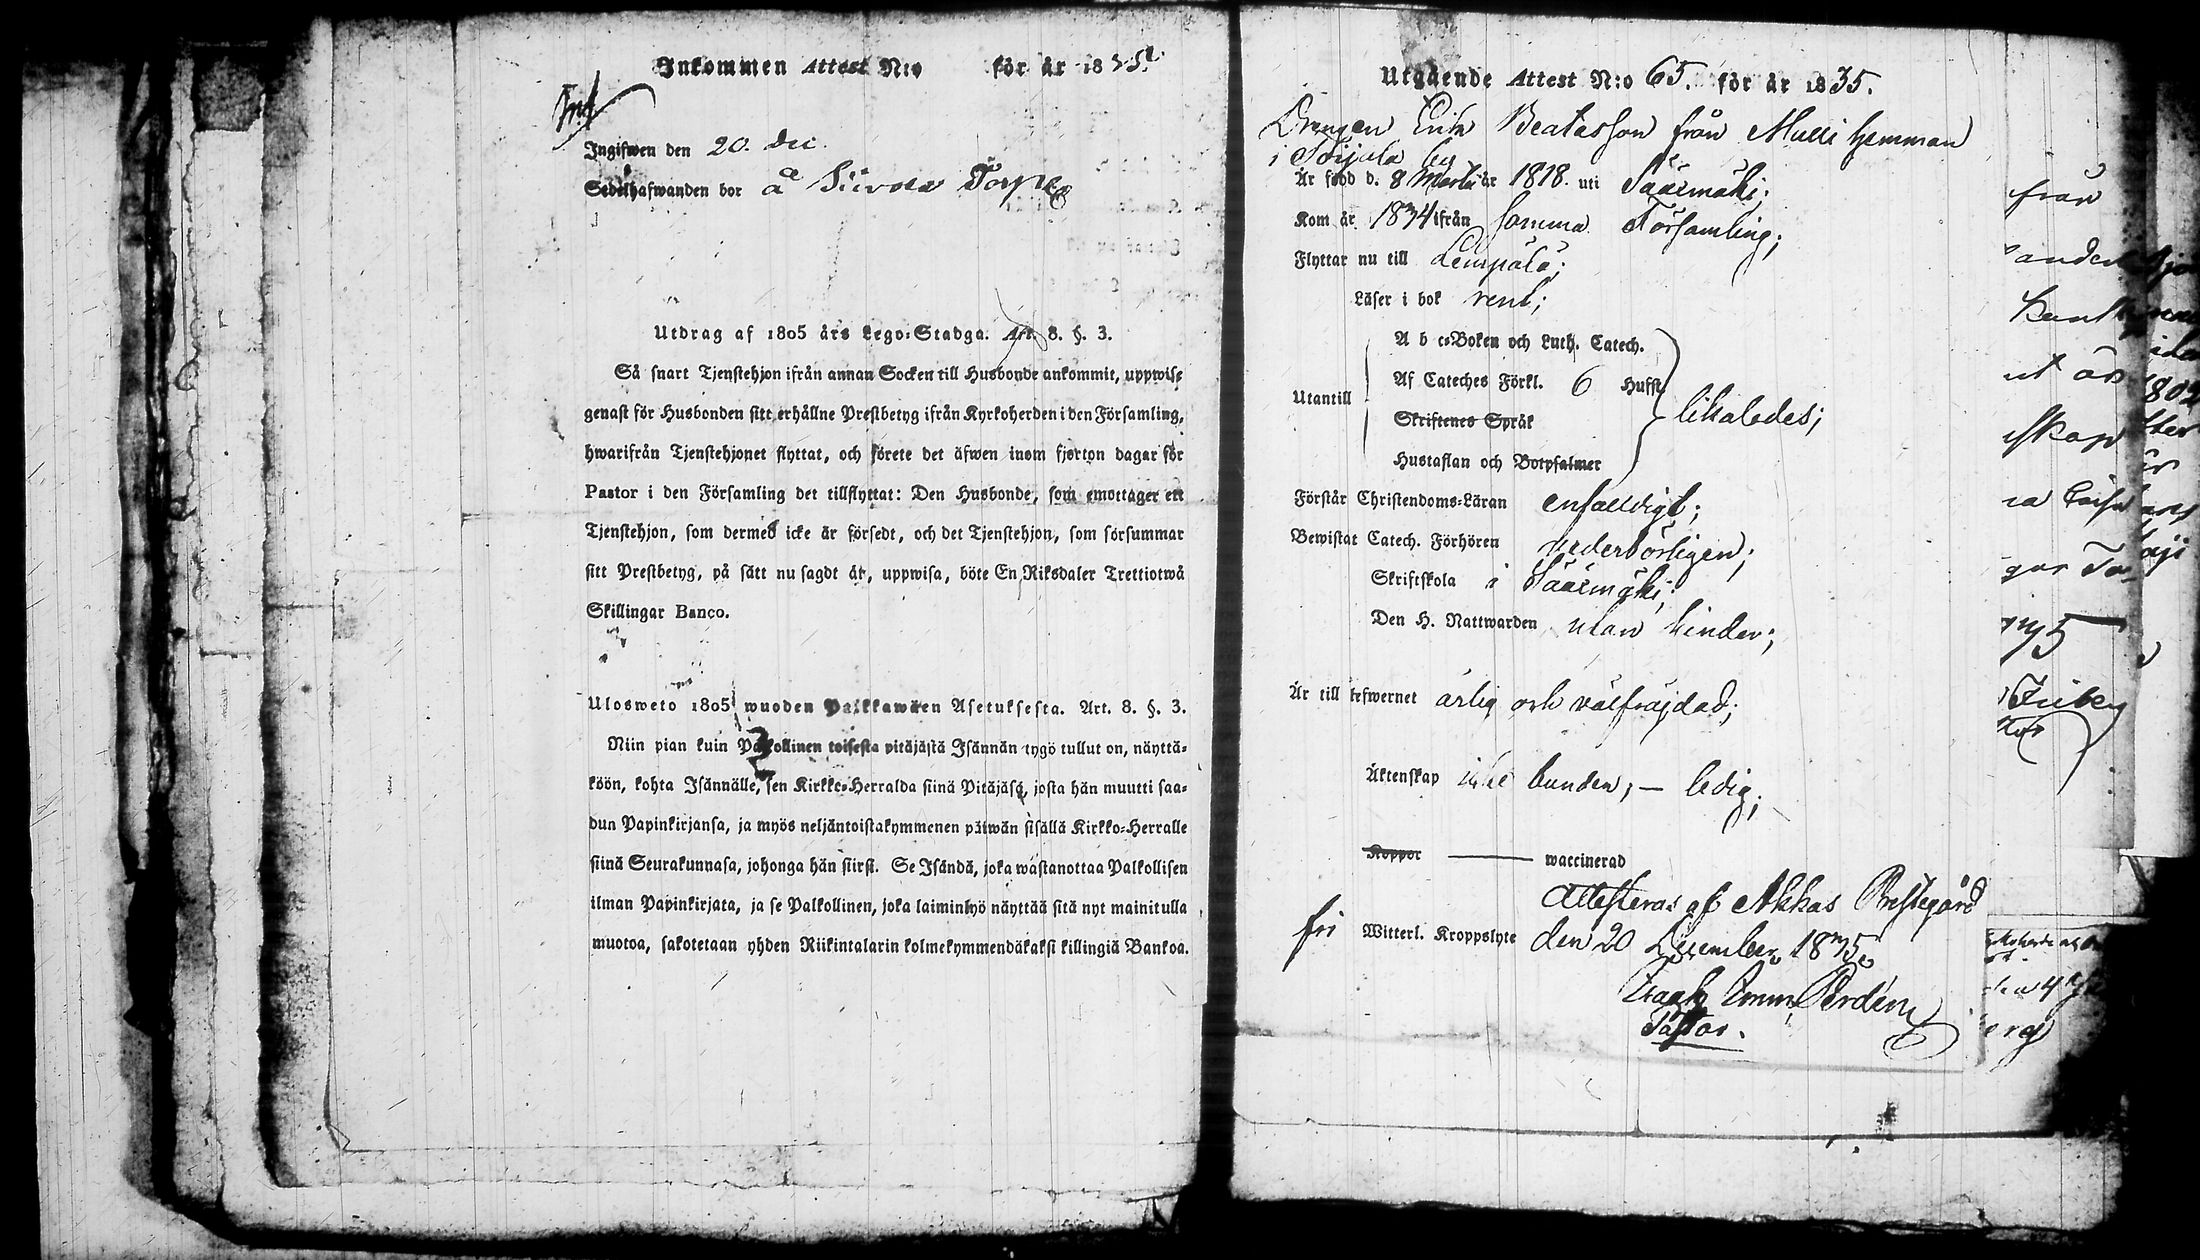 Inkommen Attest N:o för år 1835.
Ingifwen den 20. Dec.
Sedelhafwanden bor å Torp
Utdrag af 1805 års Lego-Stadga. Art. 8. §. 3.
Så snart Tjenstehjon ifrån annan Socken till Husbonde ankommit, uppwise
genast för Husbonden sitt erhållne Prestbetyg ifrån Kyrkoherden i den Församling,
hwarifrån Tjenstehjonet flyttat, och förete det äfwen inom fjorton dagar för
Pastor i den Församling det tillflyttat: Den Husbonde, som emottager ett
Tjenstehjon, som dermed icke är försedt, och det Tjenstehjon, som försummar
sitt Prestbetyg, på sätt nu sagdt är, uppwisa, böte En Riksdaler Trettiotwå
Skillingar Banco.
Ulosweto 1805 wuoden Palkkawäen Asetuksesta. Art. 8. §. 3.
Niin pian kuin Palkollinen toisesta pitäjästä Isännän tygö tullut on, näyttä-
köön, kohta Isännälle, sen Kirkko-Herralda siinä Pitäjäsä, josta hän muutti saa-
dun Papinkirjansa, ja myös neljäntoistakymmenen päiwän sisällä Kirkko-Herralle
siinä Seurakunnasa, johonga hän siirsi. Se Isändä, joka wastanottaa Palkollisen
ilman Papinkirjata, ja se Palkollinen, joka laiminlyö näyttää sitä nyt mainitulla
muotoa, sakotetaan yhden Riikintalarin kolmekymmendäkaksi killingiä Bankoa.
Utgående Attest N:o 65. för år 1835.
Drengen Erik Beatasson från Mulli hemman
i Toijala by
Är född d. 8 Martii år 1818. uti Sääxmäki;
Kom år 1834 ifrån samma Församling;
Flyttar nu till Lempälä;
Läser i bok rent;
A b c-Boken och Luth. Catech.
Af Cateches Förkl. 6 Hufst.
Utantill
Skriftenes Språk
likaledes;
Hustaflan och Botpsalmer
Förstår Christendoms-Läran enfalldigt;
Bewistat Catech. Förhören vederbörligen;
Skriftskola i Sääxmäki;
Den H. Nattwarden utan hinder;
Är till lefwernet ärlig och välfräjdad;
Äktenskap icke bunden; — ledig;
Koppor — waccinerad
Attesteras af Akkas Prestegård
fri Witterl. Kroppslyte den 20 December 1835.
Pastor.
från
ut